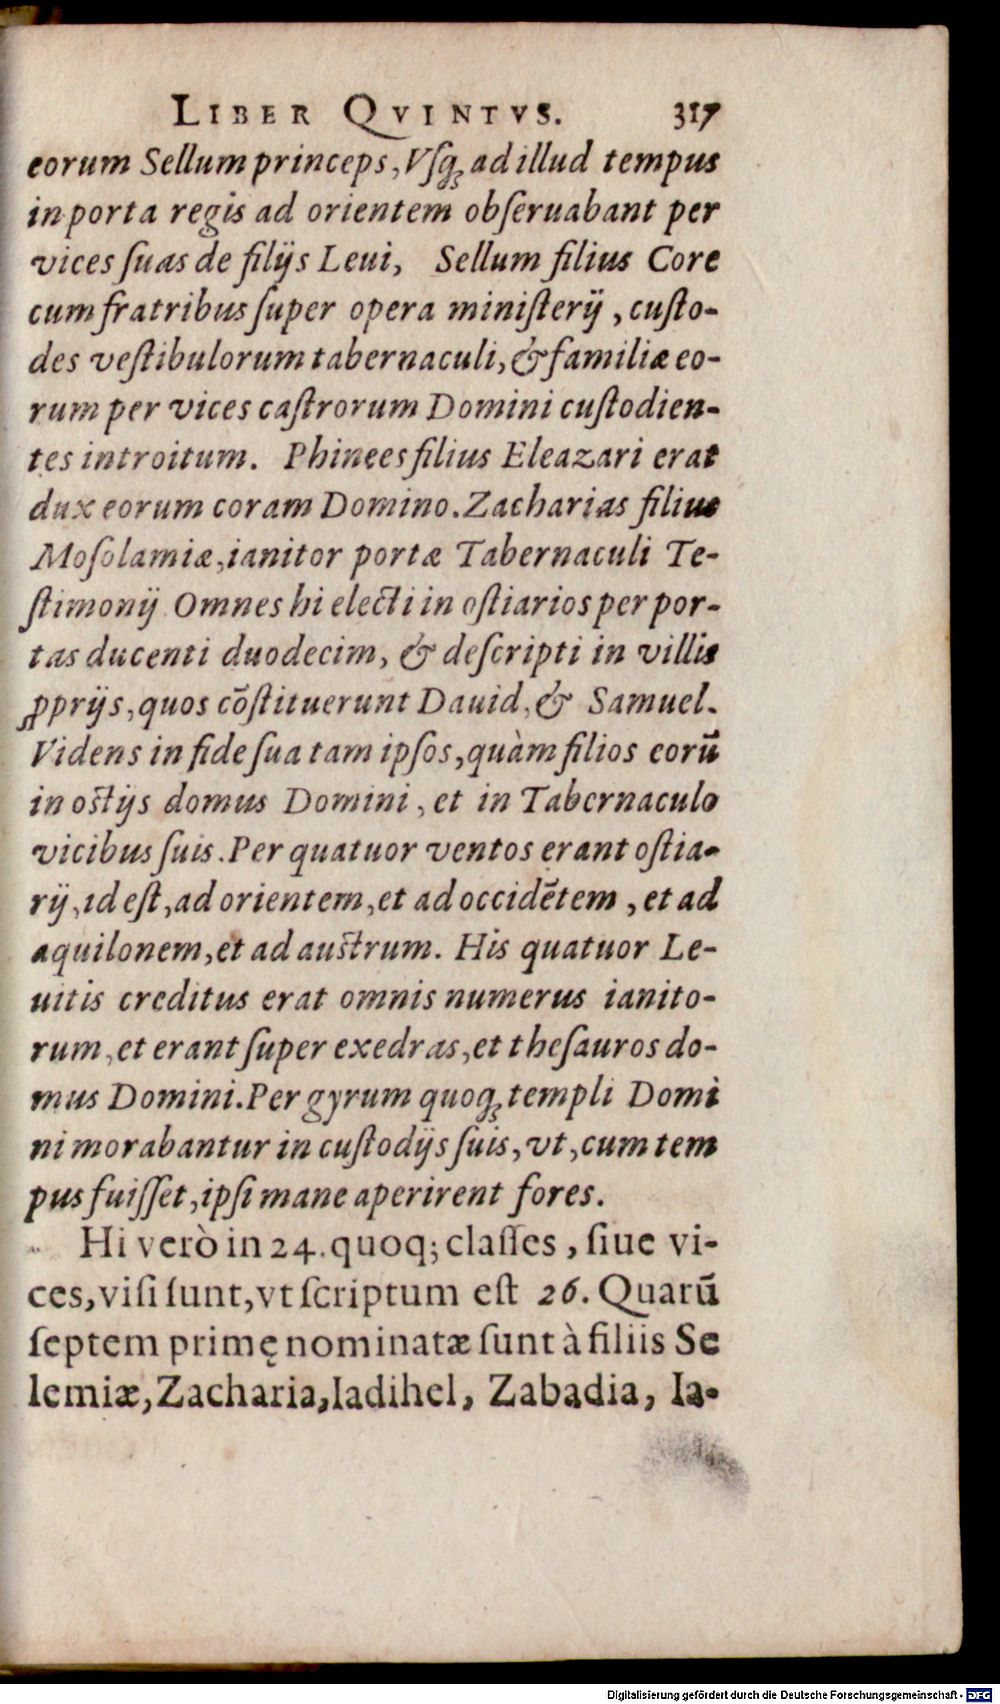 LIBER QVINTVS. 317
eorum Sellum princeps, Vſq; ad illud tempus
in porta regis ad orientem obſeruabant per
vices ſuas de filijs Leui, Sellum filius Core
cum fratribus ſuper opera miniſterij, cuſto-
des veſtibulorum tabernaculi, & familiæ eo-
rum per vices caſtrorum Domini cuſtodien-
tes introitum. Phinees filius Eleazari erat
dux eorum coram Domino. Zacharias filius
Moſolamiæ, ianitor portæ Tabernaculi Te-
ſtimonij Omnes hi electi in oſtiarios per por-
tas ducenti duodecim, & deſcripti in villis
ꝓprijs, quos cõſtituerunt Dauid, & Samuel.
Videns in fide ſua tam ipſos, quàm filios eorũ
in oſtijs domus Domini, et in Tabernaculo
vicibus ſuis. Per quatuor ventos erant oſtia-
rij, id eſt, ad orientem, et ad occidẽtem, et ad
aquilonem, et ad auſtrum. His quatuor Le-
uitis creditus erat omnis numerus ianito-
rum, et erant ſuper exedras, et theſauros do-
mus Domini. Per gyrum quoq; templi Domi
ni morabantur in cuſtodijs ſuis, vt, cum tem
pus fuiſſet, ipſi mane aperirent fores.
Hi verò in 24. quoq; claſſes, ſiue vi-
ces, viſi ſunt, vt ſcriptum eſt 26. Quarũ
ſeptem primę nominatæ ſunt à filiis Se
lemiæ, Zacharia, Iadihel, Zabadia, Ia-
Digitalisierung gefördert durch die Deutsche Forschungsgemeinschaft - DFG